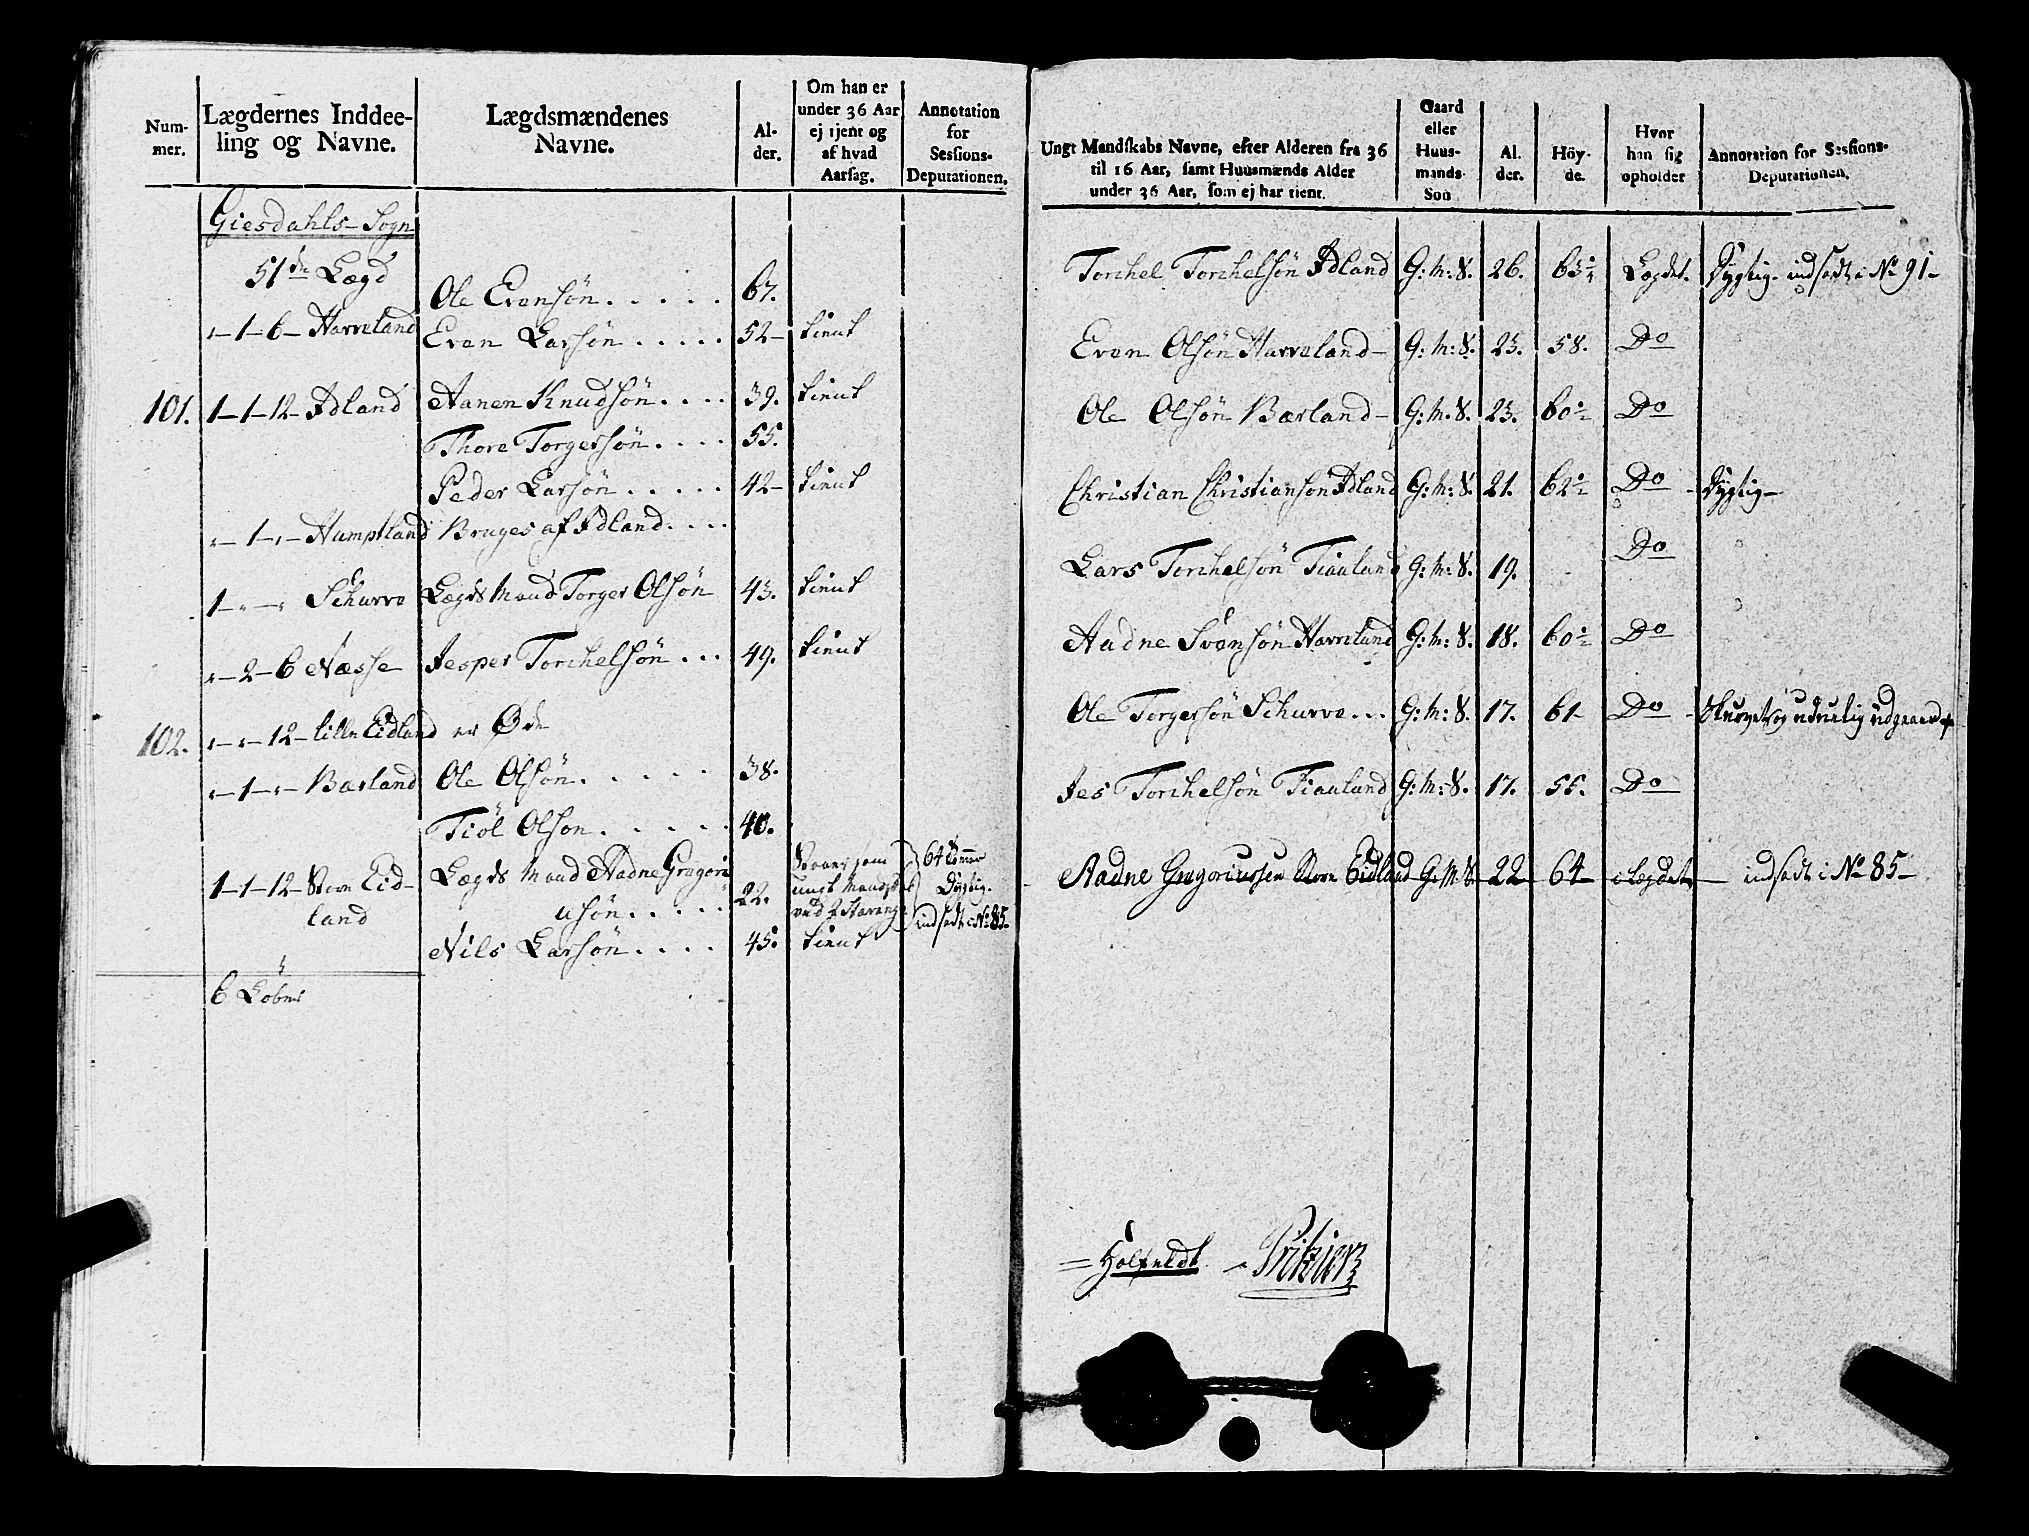 Num-
mer.
Lægdernes Inddee-
ling og Navne.
Lægdsmændenes
Navne.
Al-
der.
Om han er
under 36 Aar
ej tjent og
af hvad
Aarsag.
Annotation
for
Sessions-
Deputationen.
Giesdahls-Sogn
51de Lægd
Ole Evensön . . . . . 67.
"-1-6- Havreland Even Larsön . . . . . 52- tient
101. 1-1-12- Ädland Aanen Knudsön . . . . 39. tient
Thore Torgersön . . . . 55.
Peder Larsön . . . . . 42- tient
"-1-"- Humpland Bruges af Ädland . . . .
1-"-" Schurve Lægds Mand Torger Olsön 43. tient
"-2-6 Næsse Jesper Torchelsön . . . 49. tient
102. "-"-12- lille Eidland er Øde
"-1-"- Bærland Ole Olsön . . . . . 38.
Tiöl Olson . . . . . 40.
1-1-12- Store Eid-
land
Lægds Mand Aadne Gregori
usön . . . . . 22.
ungt Mandskab
64 Tommer
Dygtig.
indsadt i No 85.
Nils Larsön . . . . 45. tient
6 Löber
Ungt Mandskabs Navne, efter Alderen fra 36
til 16 Aar, samt Huusmænds Alder
under 36 Aar, som ej har tient.
Gaard
eller
Huus-
mands-
Son
Al.
der.
Höy-
de.
Hvor
han sig
opholder
Annotation for Sessions-
Deputationen.
Torchel Torchelsön Ädland G: M: S. 26. 63 Lægdet. Dygtig. indsadt i No 91-
Even Olsön Havreland- G: M: S. 23. 58. Do
Ole Olsön Bærland- G: M: S. 23. 60 Do
Christian Christianson Ädland G: M: S. 21. 62 Do - Dygtig-
Lars Torchelsön Tiauland G: M: S. 19. Do
Aadne Svensön Havreland G: M: S. 18. 60 Do
Ole Torgersön Schurve . . . G: M: S. 17. 61- Do - og uduelig udgaaer
Jes Torchelsön Tiauland G: M: S. 17. 55. Do
Aadne Gregoriussen Store Eidland G: M: S. 22 64 i Lægdet - indsadt i No 85-
Holfeldt. Pritzier